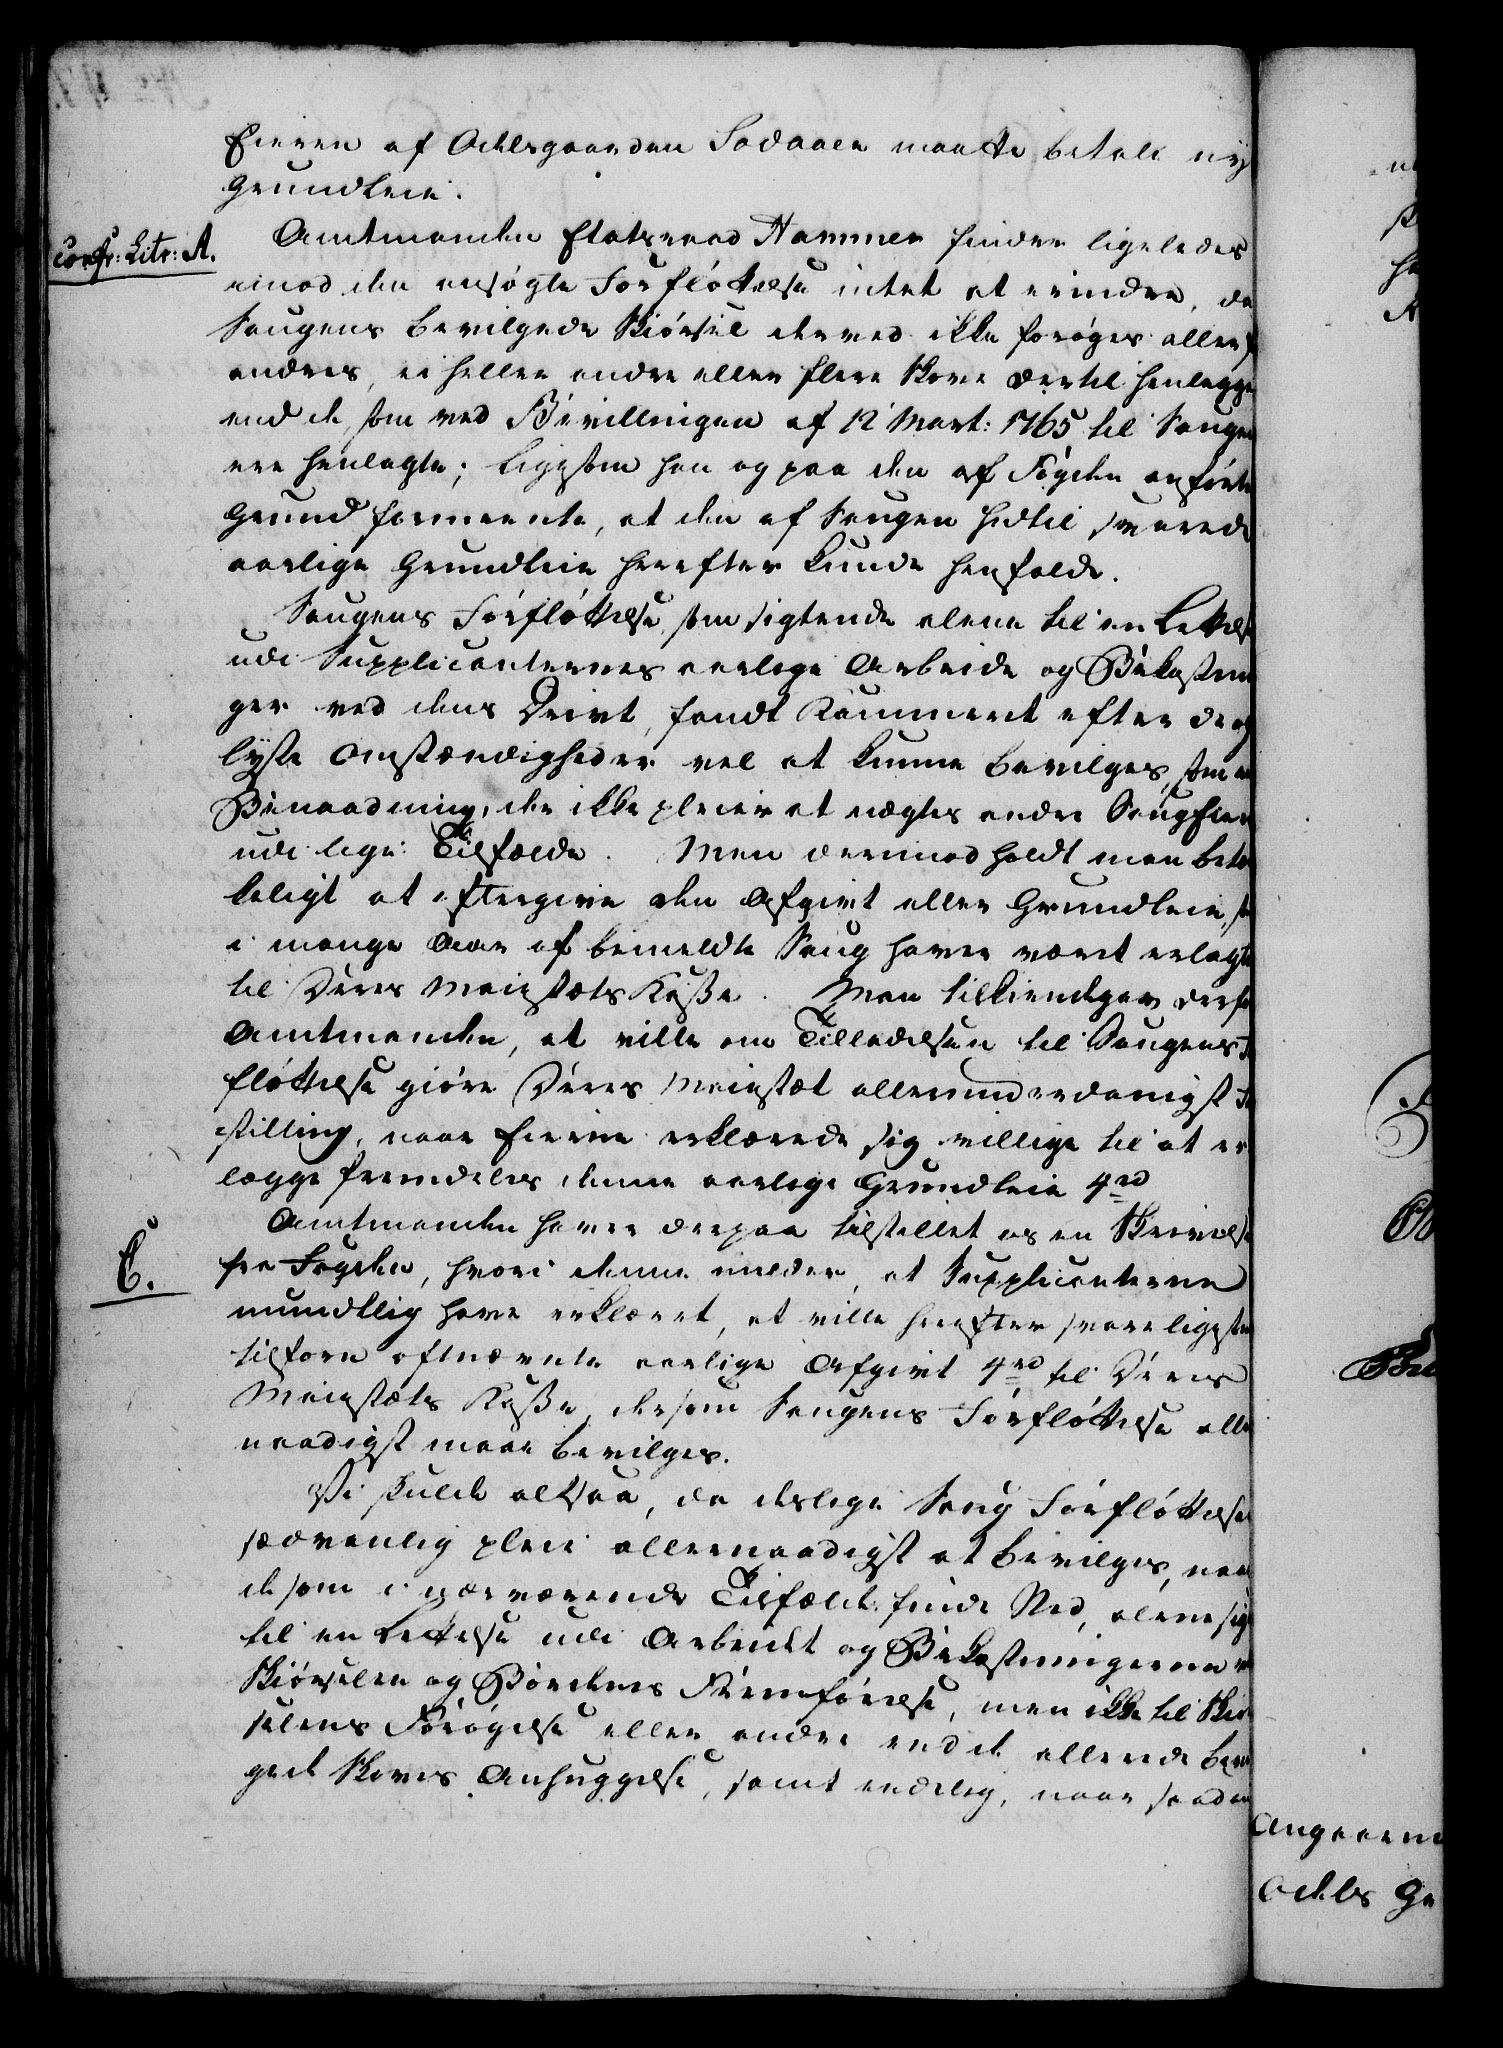 Eieren af Odelsgaarden Sodaaen maatte betale ny
Grundleie.
Confr: Litr: A.
Amtmanden Etatsraad Hammer finder ligeledes
imod den ansøgte Forfløttelse intet at erindre, da
Saugens bevilgede Skiørsel derved ikke forøges eller
andres, ei heller andre eller flere Skove dertil henlegges
end de som ved Bevillingen af 12 Mart: 1765 til Saugen
ere henlagte; ligesom han og paa den af Fogden anførte
Grund formeente, at den af Saugen hidtil svarede
aarlige Grundleie herefter kunde henfalde.
Saugens Forfløttelse, som sigtende alene til en Lettelse
udi Supplicanternes aarlige Arbeide og Bekostnin
ger ved dens Drivt, fandt Kammeret efter de op
lyste Omstændigheder vel at kunne bevilges, som en
Benaadning, der ikke pleier at nægtes andre Saugeiere
udi lige Tilfælde. Men derimod holdt man betæn
keligt at eftergive den Afgivt eller Grundleie, som
i mange Aar af bemeldte Saug haver været erlagt
til Deres Majestæts Kasse. Man tilkiendegav derfor
Amtmanden, at ville om Tilladelsen til Saugens For
fløttelse giøre Deres Majestæt allerunderdanigst Fore
stilling, naar Eierne erklærede sig villige til at er
lægge fremdeles denne aarlige Grundleie 4 rd
C.
Amtmanden haver derpaa tilstillet os en Skrivelse
fra Fogden, hvori denne melder, at Supplicanterne
mundtlig have erklæret, at ville herefter svare ligesom
tilforn oftnævnte aarlige Afgivt 4 rd til Deres
Majestæts Kasse, dersom Saugens Forfløttelse aller
naadigst maae bevilges.
Vi skulde altsaa, da deslige Saug Forfløttelser
sædvanlig pleie allernaadigst at bevilges, naar
de som i nærværende Tilfælde finde Sted, alene sigte
til en Lettelse udi Arbeidet og Bekostningerne ved
Skiørselen og Bordenes Fremførelse, men ikke til Skiør
selens Forøgelse eller andre end de allerede bevil
gede Skoves Anhuggelse, samt endelig, naar saadan
Angaaende
Odels Ga